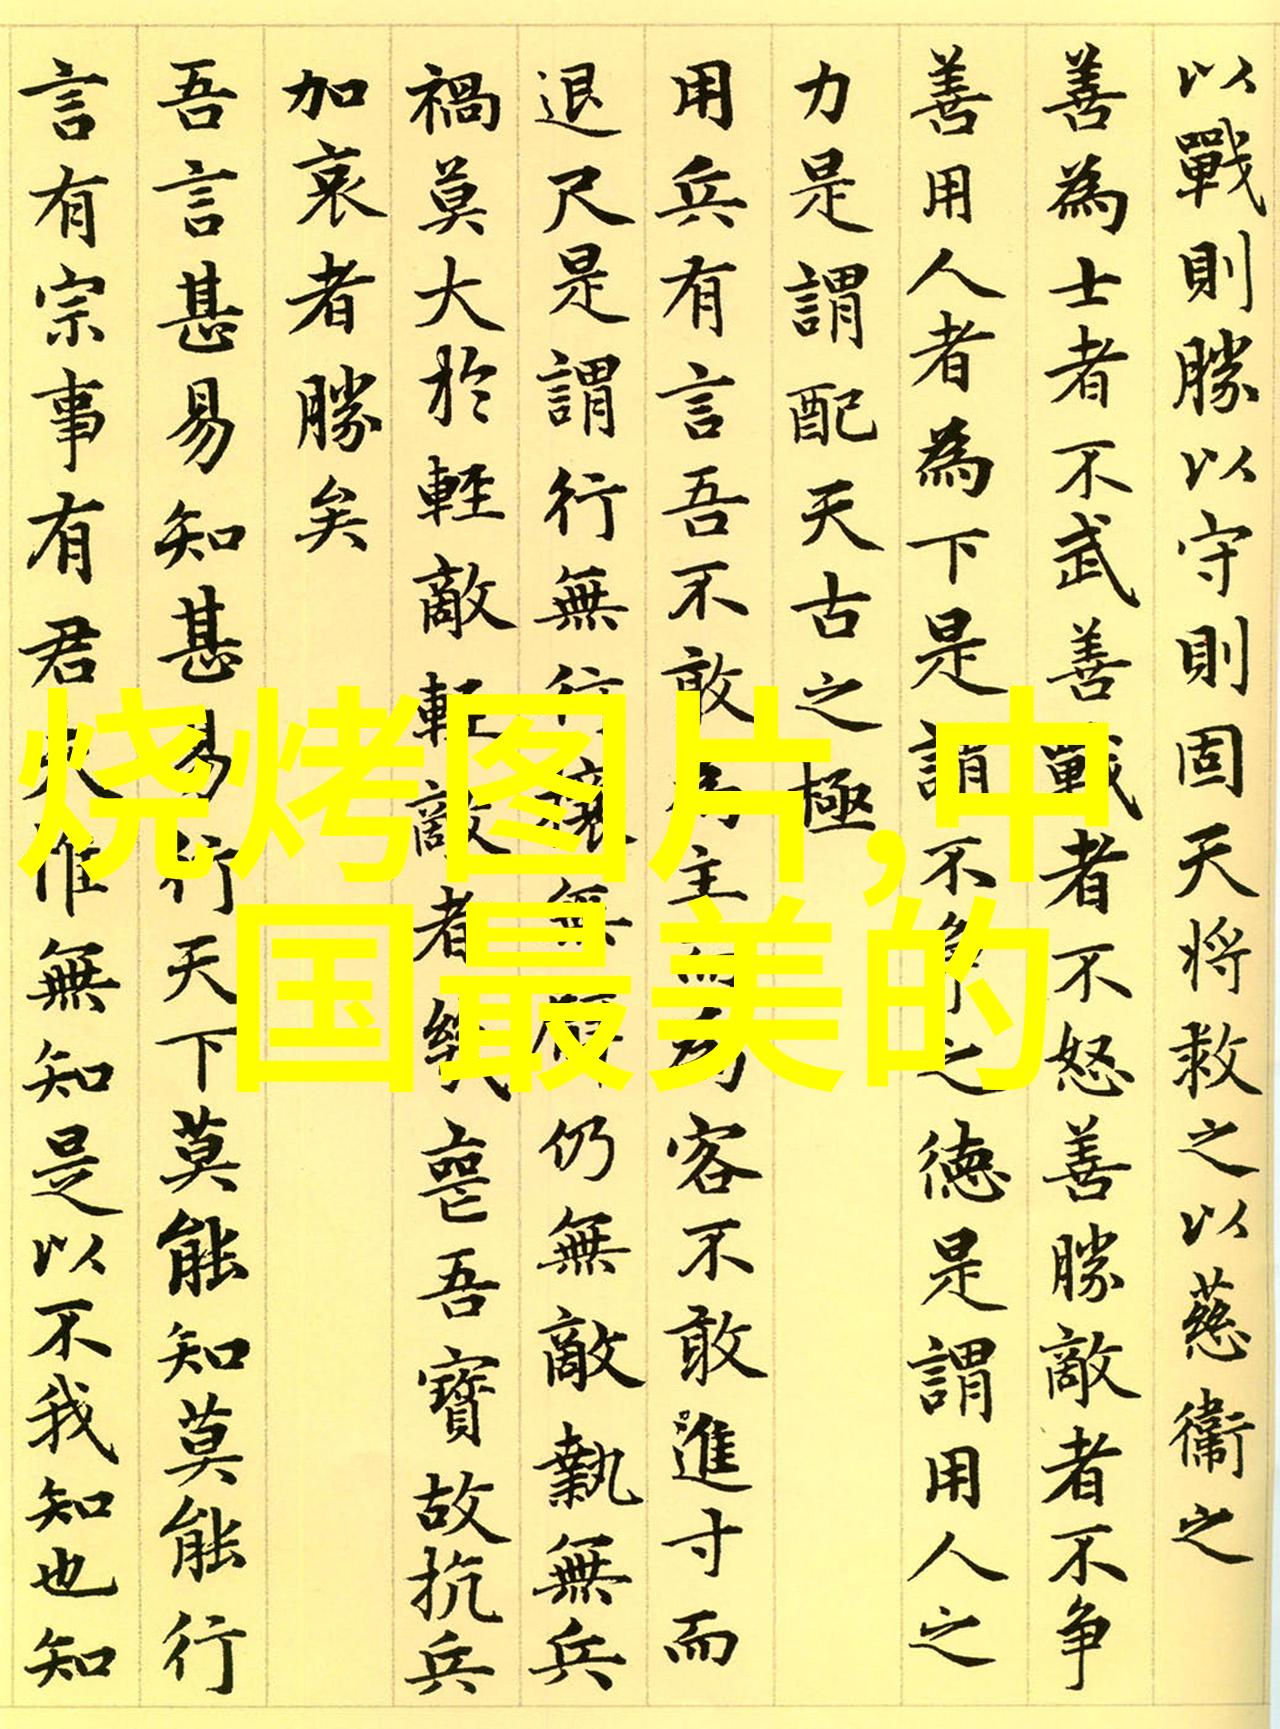 以戰則勝以守則固天將救之以慈衛之
善為士者不武善戰者不怒善勝敵者不争
善用人者為下是謂不争之德是謂用人之
力是謂配天古之極
用兵有言吾不敢為主而為客不敢進寸而
退尺是謂行無行攘無臂仍無敵執無兵
禍莫大於輕敵輕敵者幾喪吾寶故抗兵
加哀者勝矣
吾言甚易知甚易行天下莫能知莫能行
言有宗事有君夫惟無知是以不我知也知
烧烤图片,中
国最美的